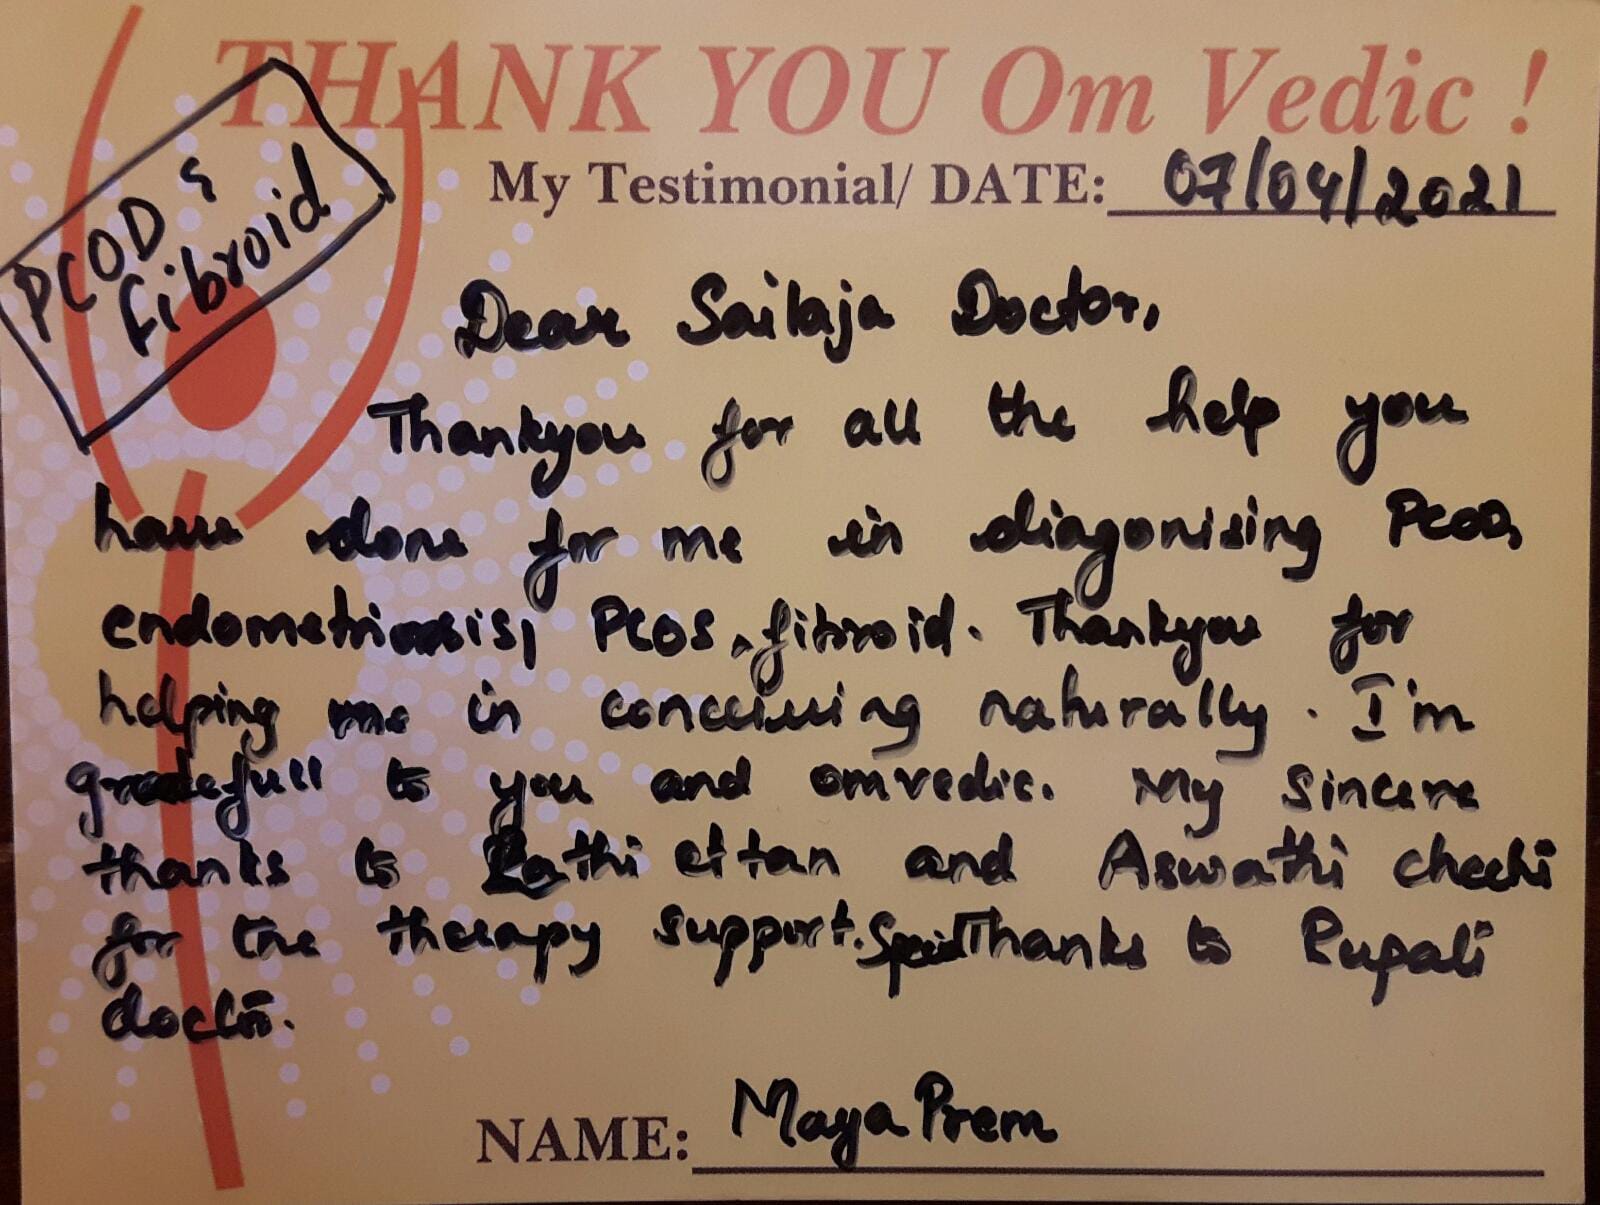 THANK YOU Om Vedic !
My Testimonial/ DATE: 07/04/2021
PCOD &
fibroid
Dear Sailaja Doctor,
Thankyou for all the help you
have done for me in diagonising PCOD,
endometriosis, PCOS, fibroid. Thankyou for
helping me in conceiving naturally. I'm
gratefull to you and omvedic. My sincere
thanks to Rathi ettan and Aswathi chechi
for the therapy support. Special Thanks to Rupali
doctor.
NAME: Maya Prem